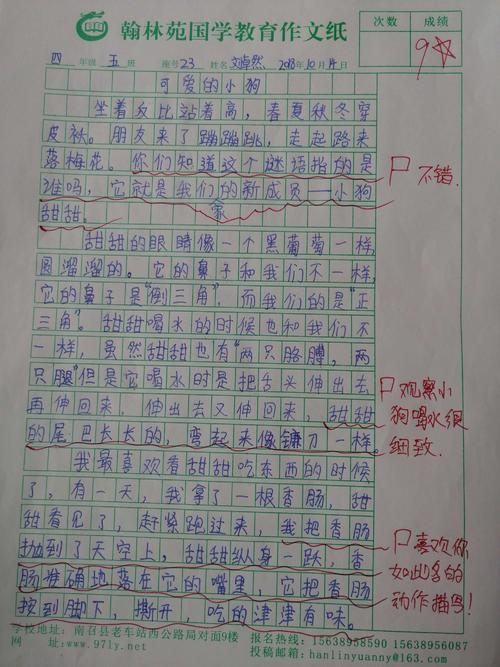 翰林苑国学教育作文纸
次数 成绩
9☆
四 年级 五 班 座号 23 姓名 刘卓然 2018年10月14日
可爱的小狗
坐着反比站着高，春夏秋冬穿
皮袄。朋友来了蹦蹦跳，走起路来
落梅花。你们知道这个谜语指的是
谁吗，它就是我们家的新成员——小狗
甜甜。
不错.
甜甜的眼睛像一个黑葡萄一样，
圆溜溜的。它的鼻子和我们不一样，
它的鼻子是“倒三角”，而我们的是“正
三角”。甜甜喝水的时候也和我们不
一样，虽然甜甜也有“两只胳膊，两
只腿”但是它喝水时是把舌头伸出去
再伸回来，伸出去又伸回来，甜甜
的尾巴长长的，弯起来像镰刀一样。
观察小
狗喝水很
细致.
我最喜欢看甜甜吃东西的时候
了，有一天，我拿了一根香肠，甜
甜看见了，赶紧跑过来，我把香肠
抛到了天空上，甜甜纵身一跃，香
肠准确地落在它的嘴里，它把香肠
按到脚下，撕开，吃的津津有味。
喜欢你
如此多的
动作描写!
学校地址：南召县老车站西公路局对面9楼 报名热线：15638958950 15638956087
网 址：www.97ly.net 投稿邮箱：hanlinyuanny@163.com